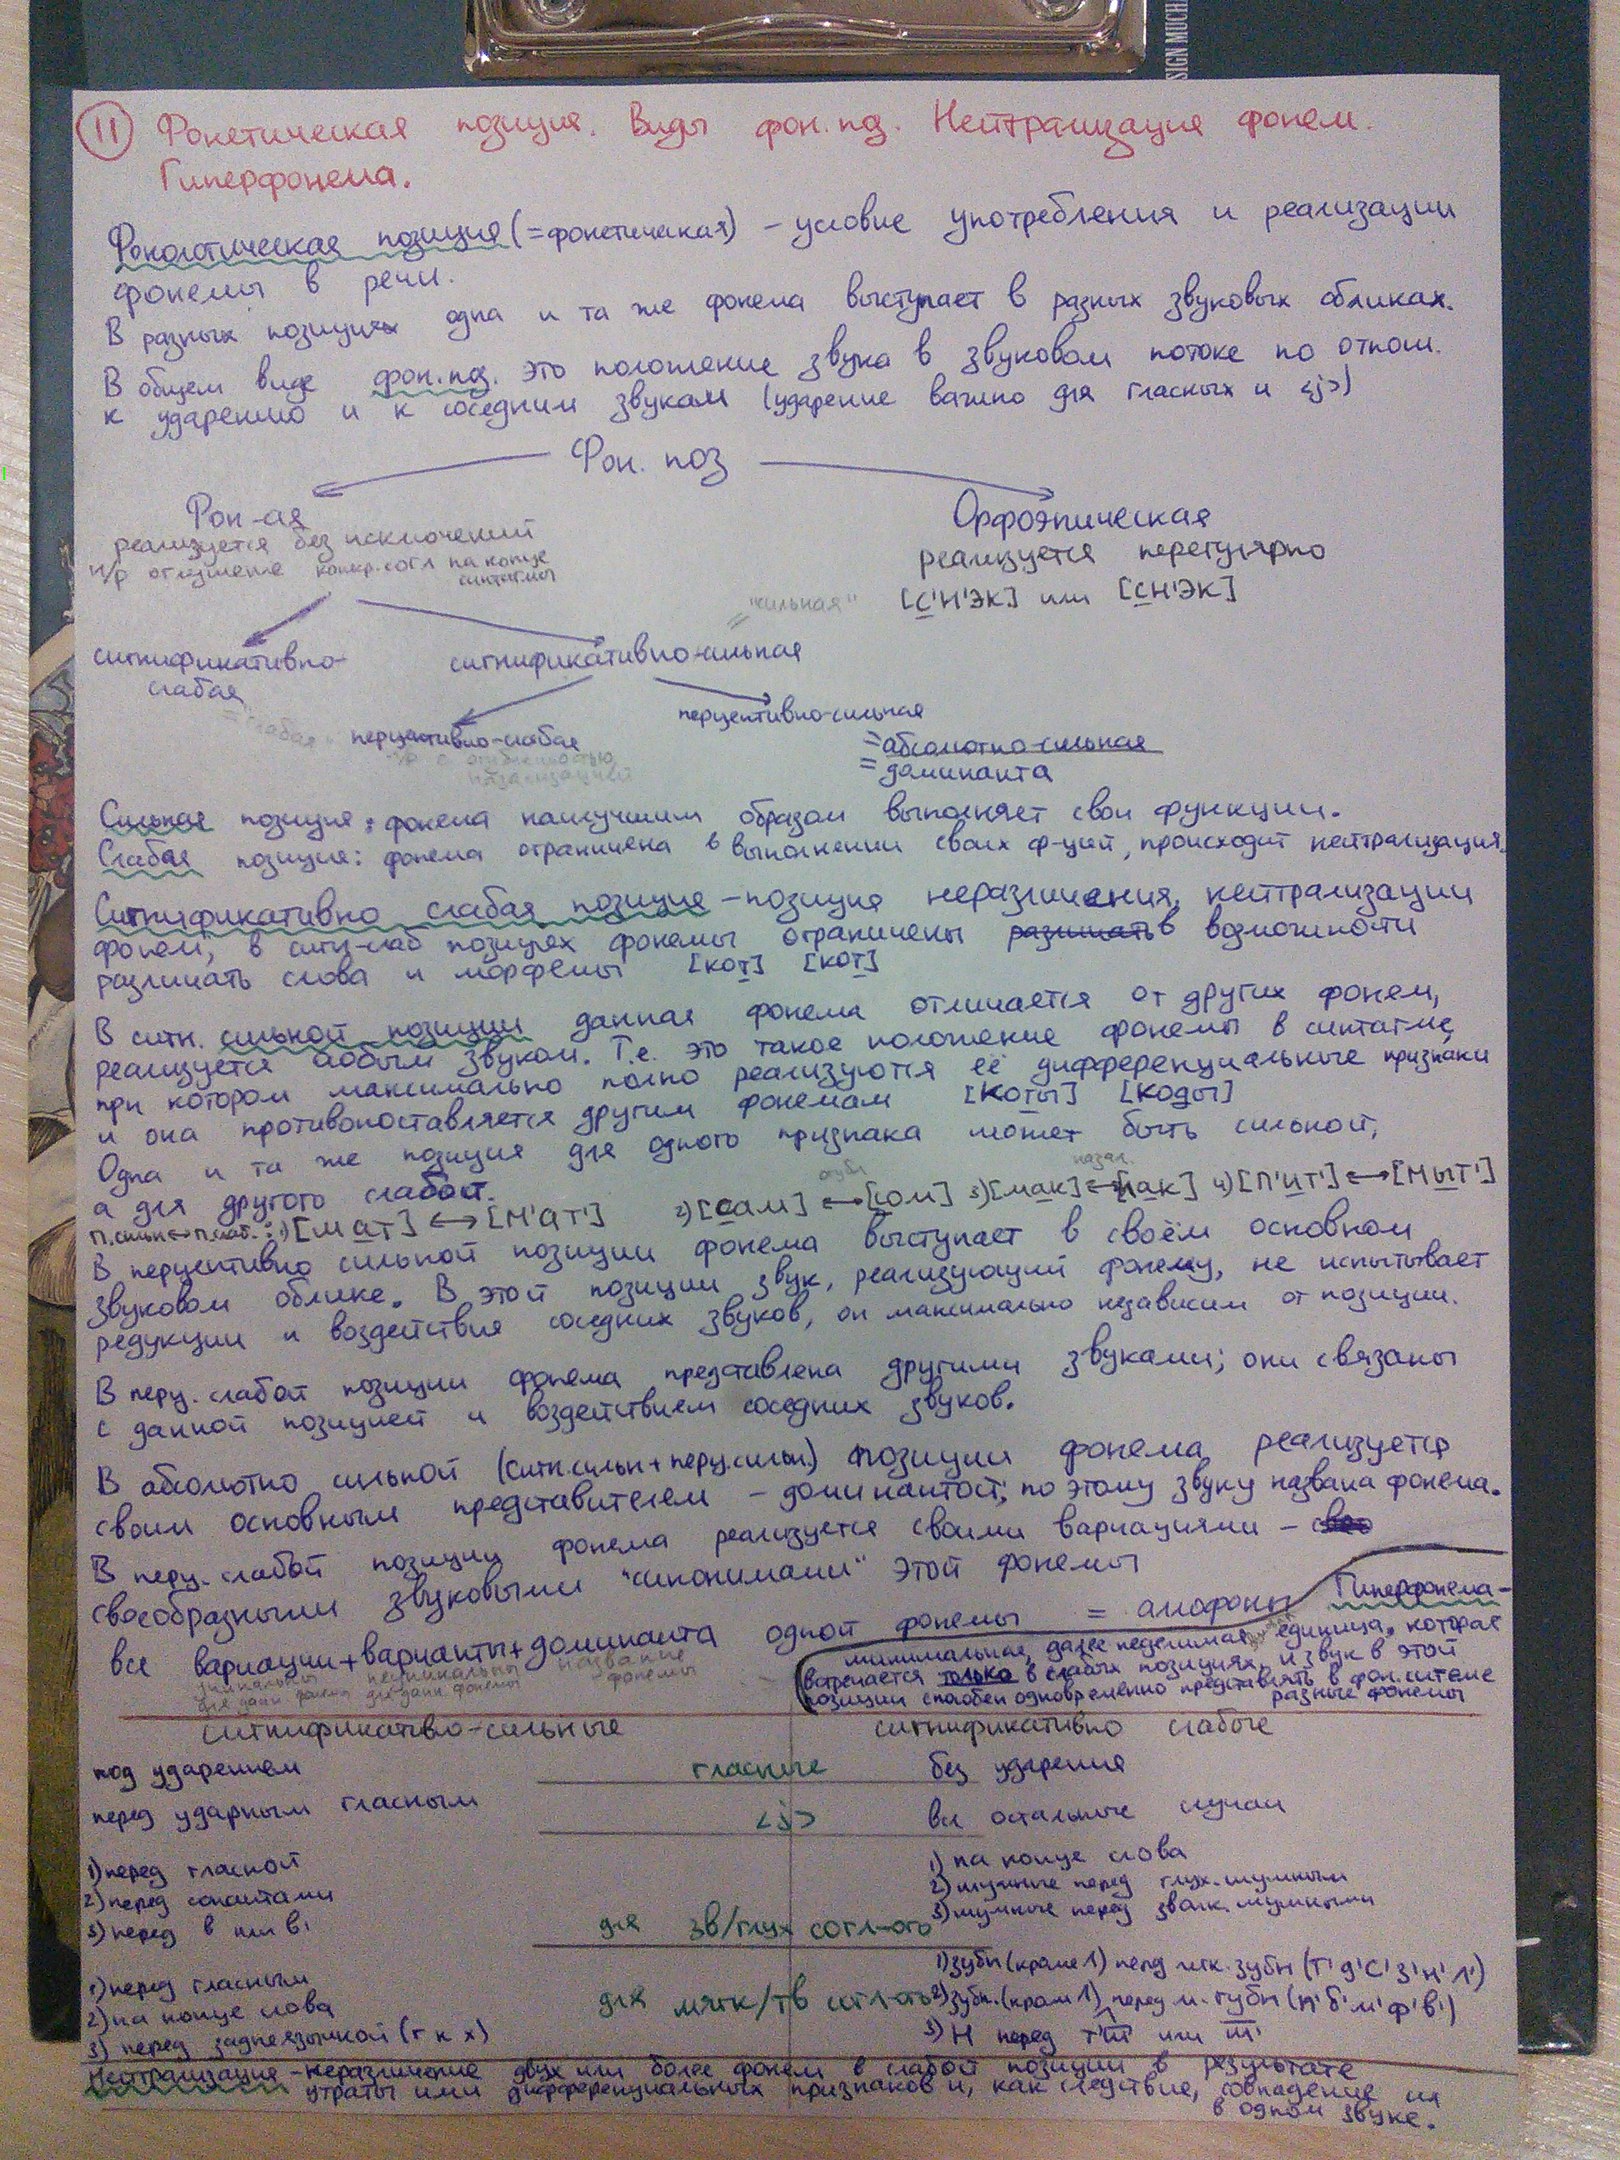 SIGN MUCH
11 Фонетическая позиция. Виды фон. поз. Нейтрализация фонем.
Гиперфонема.
Фонологическая позиция (=фонетическая) – условие употребления и реализации
фонемы в речи.
В разных позициях одна и та же фонема выступает в разных звуковых обликах.
В общем виде фон. поз. это положение звука в звуковом потоке по отнош.
к ударению и к соседним звукам (ударение важно для гласных и <j>)
Фон. поз
Фон-ая
реализуется без исключений
н/р оглушение конкр. согл на конце
синтагмы
Орфоэпическая
реализуется нерегулярно
[с'н'эк] или [сн'эк]
= "сильная"
сигнификативно-
слабая
сигнификативно-сильная
= "слабая"
перцептивно-слабая
перцептивно-сильная
=абсолютно-сильная
=доминанта
н/р с огубленностью
назализацией
Сильная позиция: фонема наилучшим образом выполняет свои функции.
Слабая позиция: фонема ограничена в выполнении своих ф-ций, происходит нейтрализация.
Сигнификативно слабая позиция – позиция неразличения, нейтрализации
фонем, в сигн-слаб позициях фонемы ограничены различать в возможности
различать слова и морфемы [кот] [кот]
В сигн. сильной позиции данная фонема отличается от других фонем,
реализуется особым звуком. Т.е. это такое положение фонемы в синтагме,
при котором максимально полно реализуются её дифференциальные признаки
и она противопоставляется другим фонемам [коты] [коды]
Одна и та же позиция для одного признака может быть сильной,
а для другого слабой.
огубл назал.
п.сильн↔п.слаб.: 1) [мат] ↔ [м'ат'] 2) [сам] ↔ [сом] 3) [мак] ↔ [как] 4) [п'ит'] ↔ [мыт']
В перцептивно сильной позиции фонема выступает в своём основном
звуковом облике. В этой позиции звук, реализующий фонему, не испытывает
редукции и воздействия соседних звуков, он максимально независим от позиции.
В перц. слабой позиции фонема представлена другими звуками; они связаны
с данной позицией и воздействием соседних звуков.
В абсолютно сильной (сигн.сильн + перц.сильн.) позиции фонема реализуется
своим основным представителем – доминантой; по этому звуку названа фонема.
В перц. слабой позиции фонема реализуется своими вариациями –
своеобразными звуковыми "синонимами" этой фонемы
все вариации + варианты + доминанта одной фонемы = аллофоны
уникальны неуникальны название
для данн фонем для данн. фонемы фонемы
Гиперфонема –
минимальная, далее неделимая единица, которая
встречается только в слабых позициях, и звук в этой
позиции способен одновременно представлять в фон. системе
разные фонемы
сигнификативо-сильные сигнификативно слабые
под ударением гласные без ударения
перед ударным гласным <j> все остальные случаи
1) перед гласной
2) перед сонантами
3) перед в или в'
для зв/глух согл-ого
1) на конце слова
2) шумные перед глух. шумным
3) шумные перед звонк. шумными
1) перед гласным
2) на конце слова
3) перед заднеязычной (г к х)
для мягк/тв согл-ого
1) зубн (кроме л) перд мягк. зубн (т' д' с' з' н' л')
2) зубн. (кром л) перед м. губн (п' б' м' ф' в')
3) Н перед т'ш' или ш'
Нейтрализация – неразличение двух или более фонем в слабой позиции в результате
утраты ими дифференциальных признаков и, как следствие, совпадение их
в одном звуке.